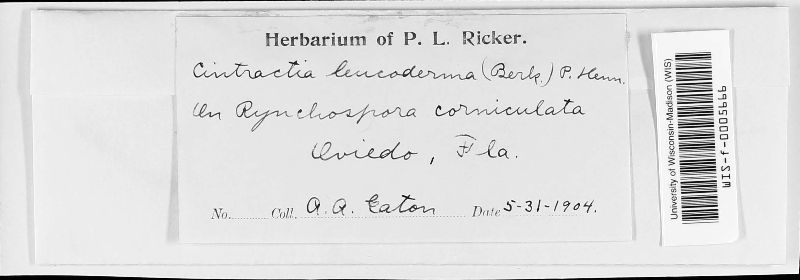 Herbarium of P. L. Ricker.
Cintractia leucoderma (Berk.) P. Henn.
On Rynchospora corniculata
Oviedo, Fla.
No. Coll. A. A. Eaton Date 5-31-1904.
University of Wisconsin-Madison (WIS)
WIS-f-0005666